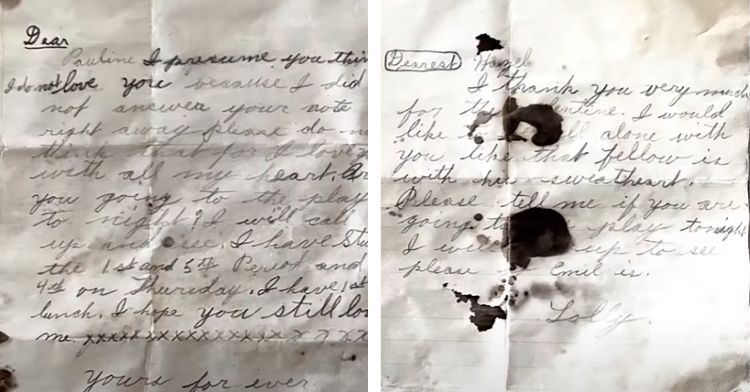 Dear
Pauline I presume you thin
I do not love you because I did
not answer your note
right away please do n
think that for I love y
with all my heart. Ar
you going to the play
to night? I will call
up and see. I have Stu
the 1st and 5th Period and
4th on Thursday. I have 1st
lunch. I hope you still lo
me. xxxxxxxxxxxxxxxxx
Yours for ever.
Dearest Hazel
I thank you very much
for the lentine. I would
like to ll alone with
you like that fellow is
with his sweetheart.
Please tell me if you are
going to play tonight
I will up to see
please Emil is.
Lolly.